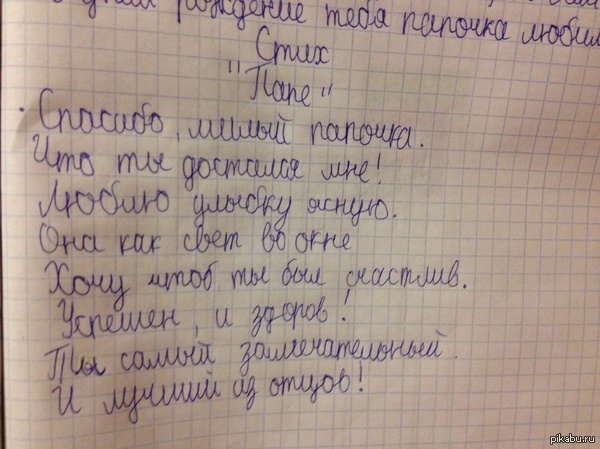 днём рождение тебя папочка любим
Стих
"Папе"
Спасибо, милый папочка.
Что ты достался мне!
Люблю улыбку ясную.
Она как свет во окне
Хочу штоб ты был счастлив.
Успешен, и здоров!
Ты самый замечательный.
И лучший из отцов!
pikabu.ru